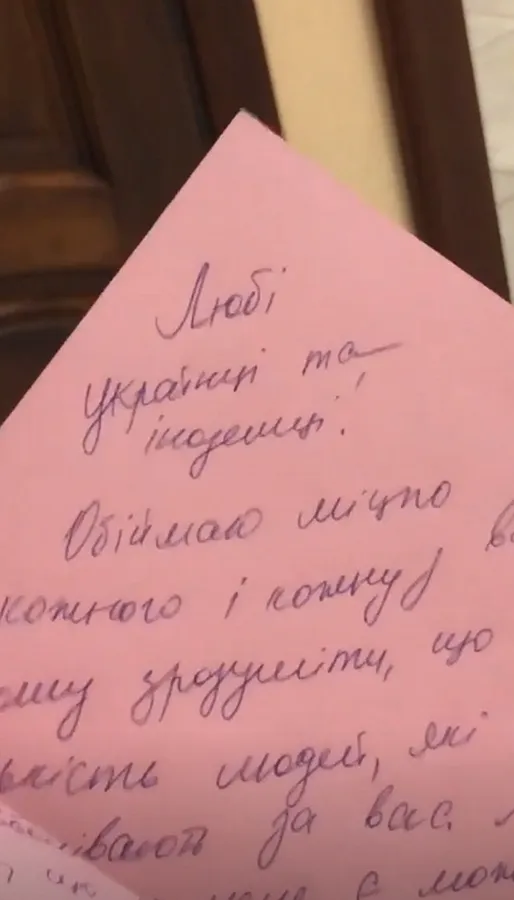 Любі
українці та
іноземці!
Обіймаю міцно
кожного і кожну
зрозуміти, що
людей, які
за вас.
є